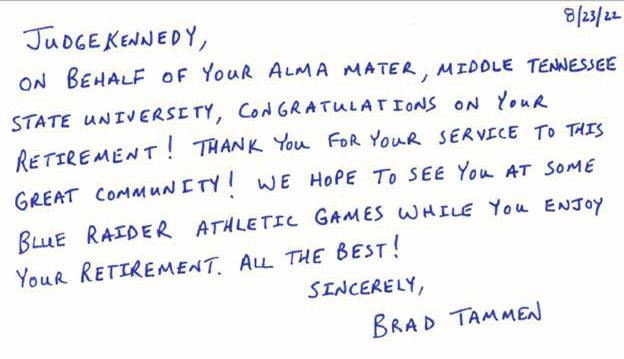 8/23/22
JUDGE KENNEDY,
ON BEHALF OF YOUR ALMA MATER, MIDDLE TENNESSEE
STATE UNIVERSITY, CONGRATULATIONS ON YOUR
RETIREMENT! THANK YOU FOR YOUR SERVICE TO THIS
GREAT COMMUNITY! WE HOPE TO SEE YOU AT SOME
BLUE RAIDER ATHLETIC GAMES WHILE YOU ENJOY
YOUR RETIREMENT. ALL THE BEST!
SINCERELY,
BRAD TAMMEN